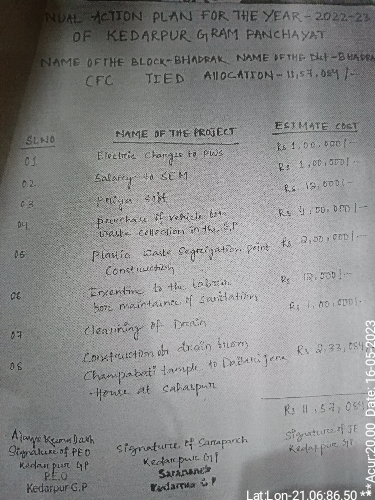 NUAL ACTION PLAN FOR THE YEAR-2022-23
OF KEDARPUR GRAM PANCHAYAT
NAME OF THE BLOCK-BHADRAK NAME OF THE Dist-BHADRA
CFC TIED Allocation-11,57,084/-
SL.NO NAME OF THE PROJECT ESTIMATE COST
01 Electric Charges to PWS Rs 1,00,000/-
02. Salary to SEM Rs 1,00,000/-
03 Priya soft Rs 12,000/-
04 purchase of vehicle for Rs 4,00,000/-
waste collection in the G.P
05 Plastic waste segrigation point Rs 2,00,000/-
Construction
06 Incentive to the Labour Rs 12,000/-
for maintaince of sanitation
07 Clearining of Drain Rs 1,00,000/-
08 Construction of drain from Rs 2,33,084
Champabati temple to Daitari jena
House at Sabarpur
Rs 11,57,084
Ajaya Kumar Dash
Signature of PEO
Kedarpur GP
P.E.O
Kedarpur G.P
Signature of Sarapanch
Kedarpur GP
Sarapanch
Kedarpur G.P
Signature of JE
Kedarpur GP
Lat:Lon-21.06:86.50 **Acur:20.00 Date:16-05-2023